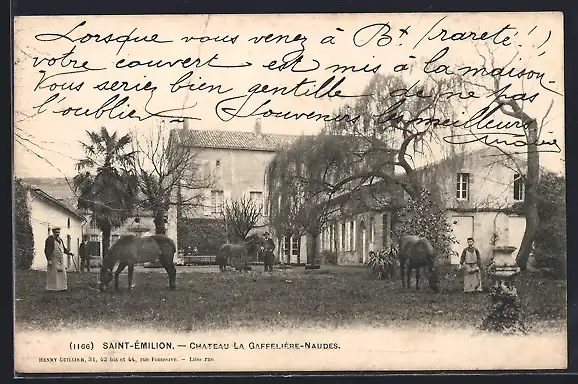 Lorsque vous venez à Bx (rareté !)
votre couvert est mis à la maison
Vous seriez bien gentille de ne pas
l'oublier Souvenirs les meilleurs
(1166) SAINT-ÉMILION. — CHATEAU LA GAFFELIÈRE-NAUDES.
HENRY GUILLIER, 31, 42 bis et 44, rue Fonneuve. — Libourne